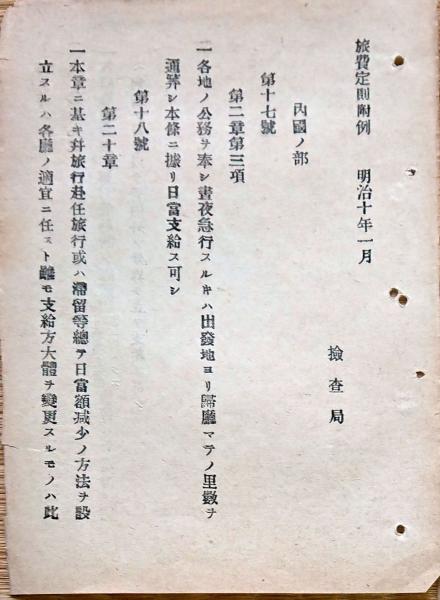 旅費定則附例　明治十年一月
撿查局
內國ノ部
第十七號
第二章第三項
一各地ノ公務ヲ奉シ晝夜急行スルキハ出發地ヨリ歸廳マテノ里數ヲ
通算シ本條ニ據リ日當支給ス可シ
第十八號
第二十章
一本章ニ基キ幷旅行赴任旅行或ハ滯留等總テ日當額減少ノ方法ヲ設
立スルハ各廳ノ適宜ニ任スト雖モ支給方大體ヲ變更スルモノハ此